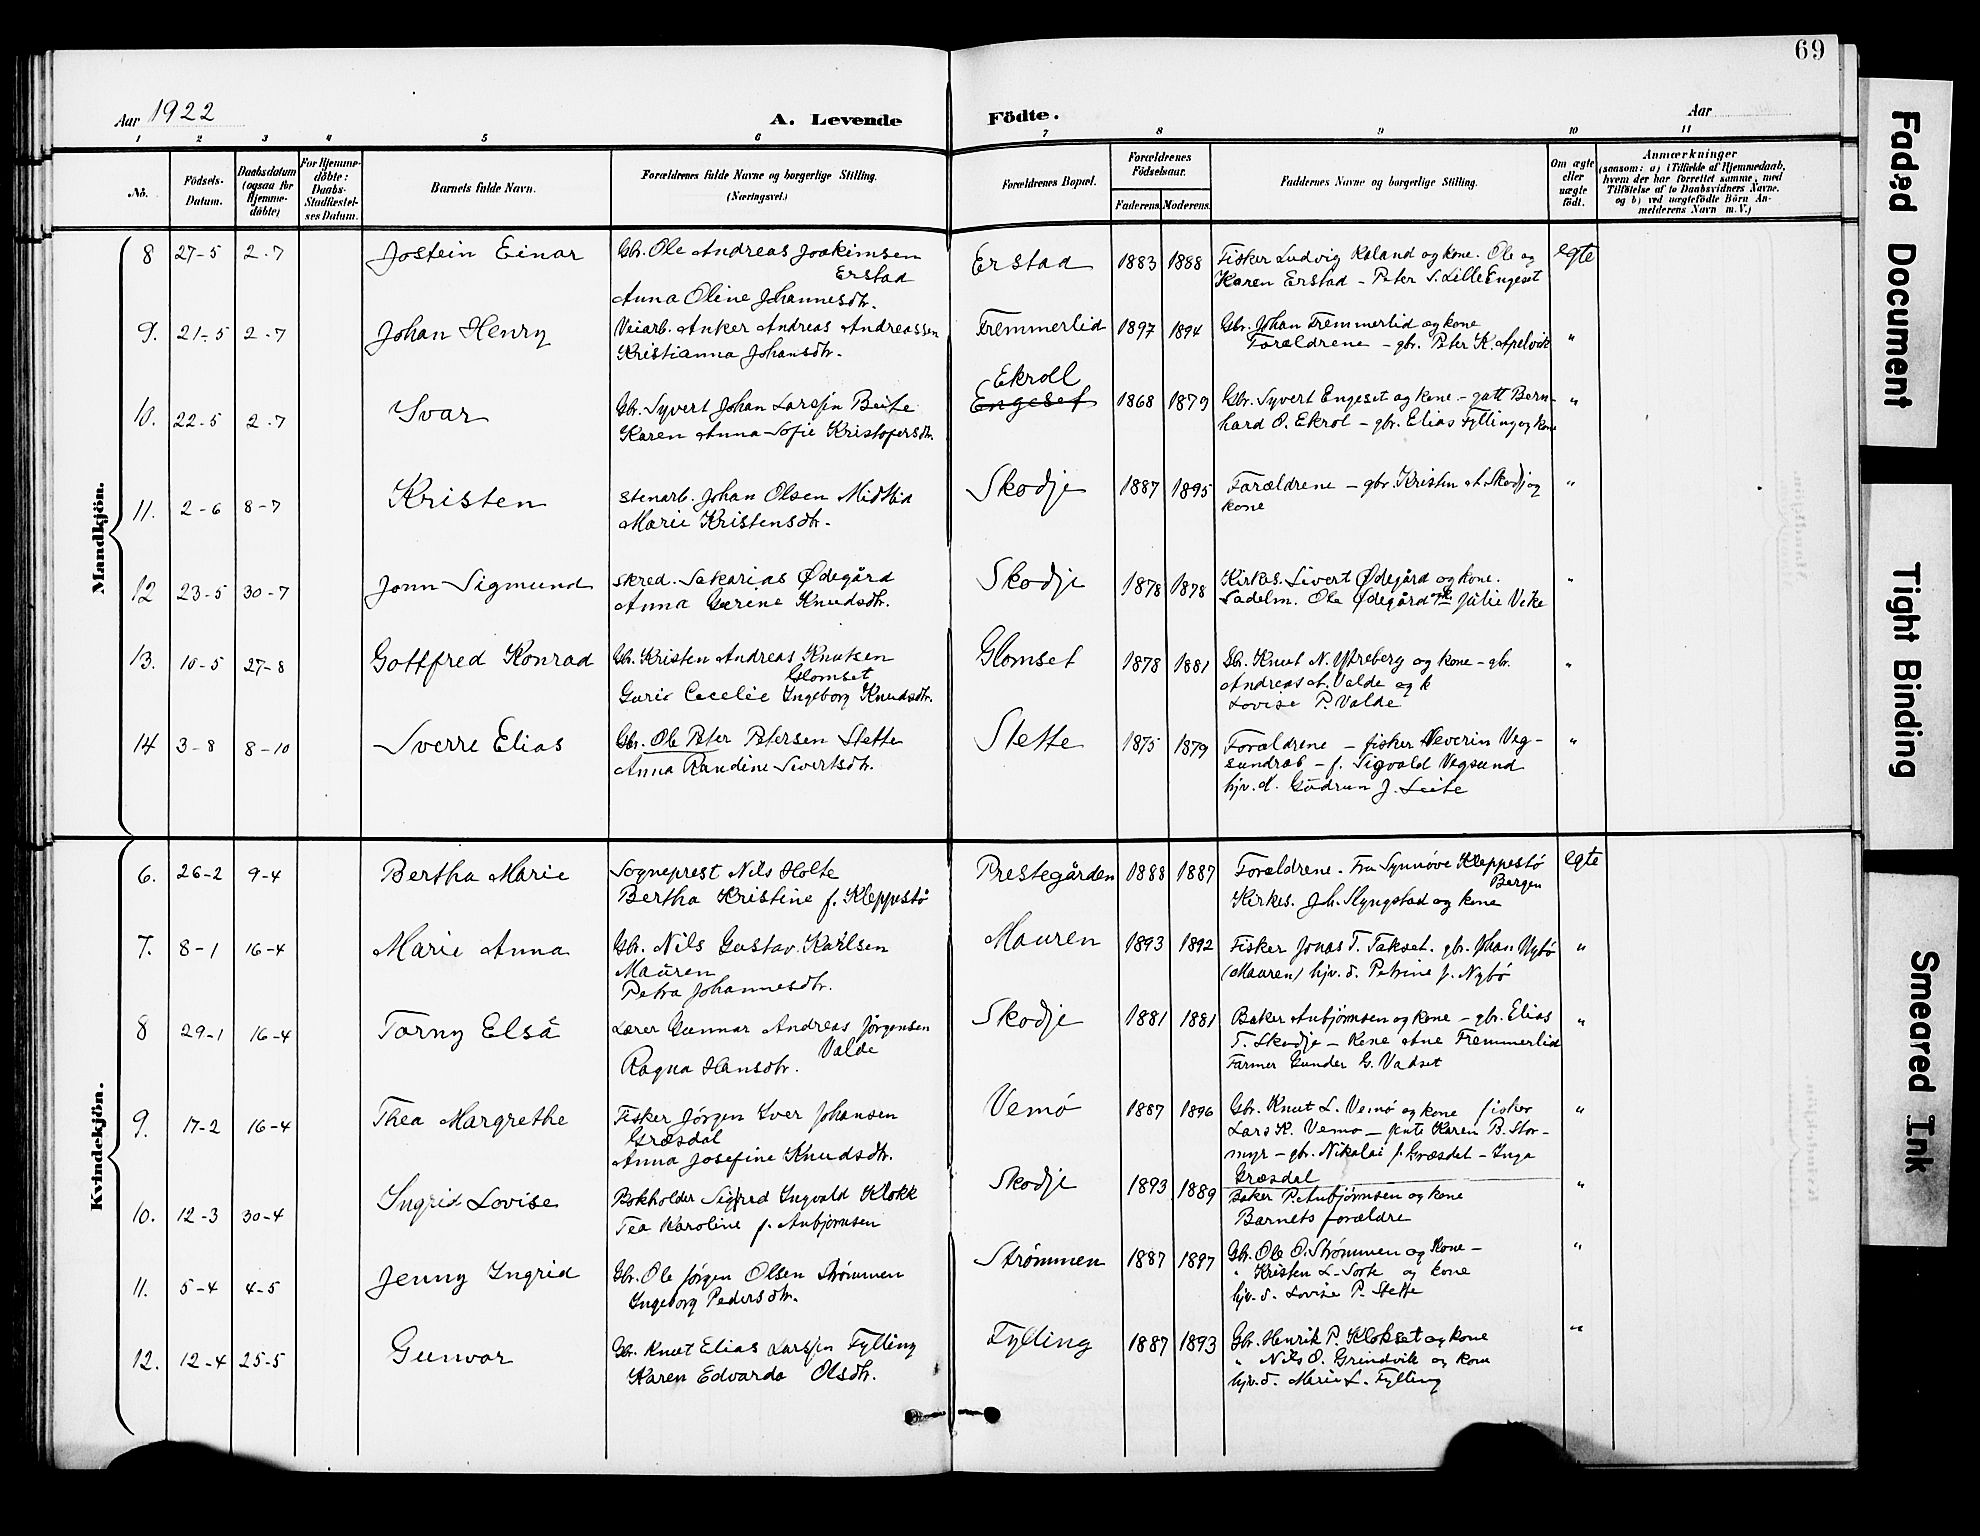 69
Aar 1922 A. Levende Födte. Aar
1 2 3 4 5 6 7 8 9 10 11
No. Födsels-Datum. Daabsdatum (ogsaa for Hjemme-döbte) For Hjemme-döbte: Daabs-Stadfæstel-ses Datum. Barnets fulde Navn. Forældrenes fulde Navne og borgerlige Stilling. (Næringsvei.) Forældrenes Bopæl. Forældrenes Födselsaar. Faderens. Moderens. Faddernes Navne og borgerlige Stilling. Om ægte eller uægte födt. Anmærkninger
(saasom: a) i Tilfælde af Hjemmedaab, hvem der har forrettet samme, med Tilföielse af to Daabsvidners Navne. og b) ved uægtefödte Börn Anmelderens Navn m. V.)
Mandkjön.
8 27-5 2-7 Jostein Einar Gbr. Ole Andreas Joakimsen Erstad 1883 1888 Fisker Ludvig Roland og kone. Ole og egte
Erstad
Anna Oline Johannesdtr. Karen Erstad - Peter S. Lille Engeset
9. 21-5 2-7 Johan Henry Veiarb. Anker Andreas Andreassen Fremmerlid 1897 1894 Gbr. Johan Fremmerlid og kone "
Kristianna Johansdtr. Forældrene - gbr. Peter K. Apelvik
Ekroll
10. 22-5 2-7 Ivar Gbr. Syvert Johan Larsen Beite Engeset 1868 1879 Gbr. Syvert Engeset og kone - gatt Bern- "
Karen Anna Sofie Kristofersdtr. hard O. Ekrol - gbr. Elias Fylling og kone
11. 2-6 8-7 Kristen Stenarb. Johan Olsen Midtlid Skodje 1887 1895 Forældrene - gbr. Kristen A. Skodje og "
Marie Kristensdtr. kone
12 23-5 30-7 Jonn Sigmund Skred. Sakarias Ødegård Skodje 1878 1878 Kirkes. Sivert Ødegård og kone. "
Anna Gærine Knudsdtr. Sadelm. Ole Ødegård og k. Julie Vike
13. 10-5 27-8 Gottfred Konrad Gbr. Kristen Andreas Knutsen Glomset 1878 1881 Gbr. Knut N. Ytreberg og kone - gbr. "
Glomset Andreas A. Valde og k
Guri Cecelie Ingeborg Knudsdtr. Lovise P. Valde
14 3-8 8-10 Sverre Elias Gbr. Ole Peter Petersen Stette Stette 1875 1879 Forældrene - fisker Severin Veg- "
Anna Randine Sivertsdtr. sundrab - f. Sigvald Vegsund
hjv. d. Gudrun J. Leite
Kvindekjön.
6. 26-2 9-4 Bertha Marie Sogneprest Nils Holte Prestegården 1888 1887 Forældrene. Fru Synnøve Kleppestö egte
Bergen
Bertha Kristine f. Kleppestö Kirkes. J. H. Slyngstad og kone
7. 8-1 16-4 Marie Anna Gbr. Nils Gustav Karlsen Mauren 1893 1892 Fisker Jonas T. Takset. gbr. Johan Nybö "
Mauren (Mauren) hjv. d. Petrine J. Nybö
Petra Johannesdtr.
8 29-1 16-4 Torny Elsa Lærer Gunnar Andreas Jörgensen Skodje 1881 1881 Baker Aubjörnsen og kone - gbr. Elias "
Valde T. Skodje - kone Ane Fremmerlid
Ragna Hansdtr. Farmer Gunder G. Vadset
9. 17-2 16-4 Thea Margrethe Fisker Jörgen Iver Johansen Vemö 1887 1896 Gbr. Knut L. Vemö og kone fisker "
Græsdal Lars K. Vemö - pnt. Karen B. Stor-
Anna Josefine Knudsdtr. myr - gbr. Nikolai J. Græsdal - Inga
Græsdal
10. 12-3 30-4 Ingrid Lovise Bokholder Sigfred Ingvald Klokk Skodje 1893 1889 Baker P. Aubjörnsen og kone "
Tea Karoline f. Aubjörnsen Barnets forældre
11. 5-4 4-5 Jenny Ingrid Gbr. Ole Jörgen Olsen Strömmen Strömmen 1887 1897 Gbr. Ole O. Strömmen og kone - "
Ingeborg Pedersdtr. " Kristen L. Sorte og kone
hjv. d. Lovise P. Stette
12. 12-4 25-5 Gunvor Gbr. Knut Elias Larsen Fylling Fylling 1887 1893 Gbr. Henrik P. Klokset og kone "
Karen Edvarda Olsdtr. " Nils O. Grindvik og kone
hjv. d. Marie L. Fylling
Faded Document
Tight Binding
Smeared Ink